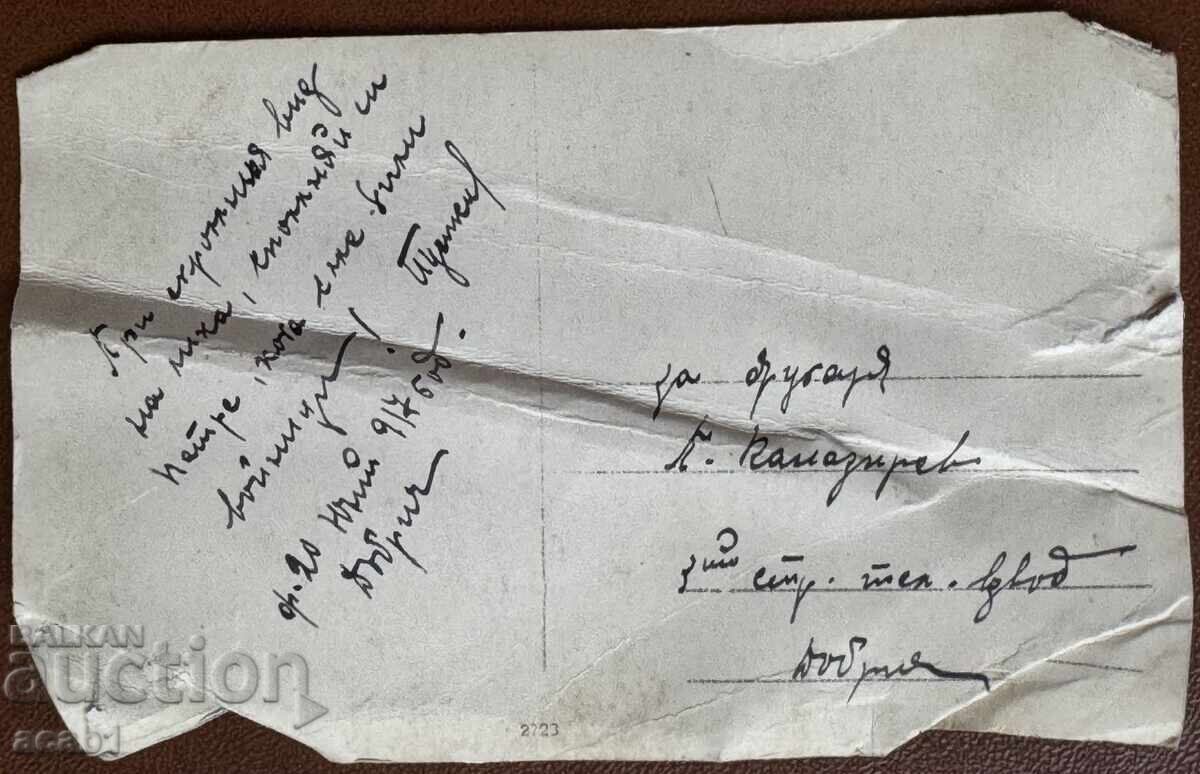 При скромния вид
на лика, спомняй си
Петре, кога сме били
войници!
Ф. 20 Юлий 917 год.
Добрич
за другаря
П. Калазирев
3ти стр. тел. взвод
Добрич
2723
BALKAN
auction
acab1